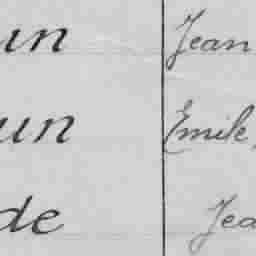 un Jean
un Emile,
de Jea